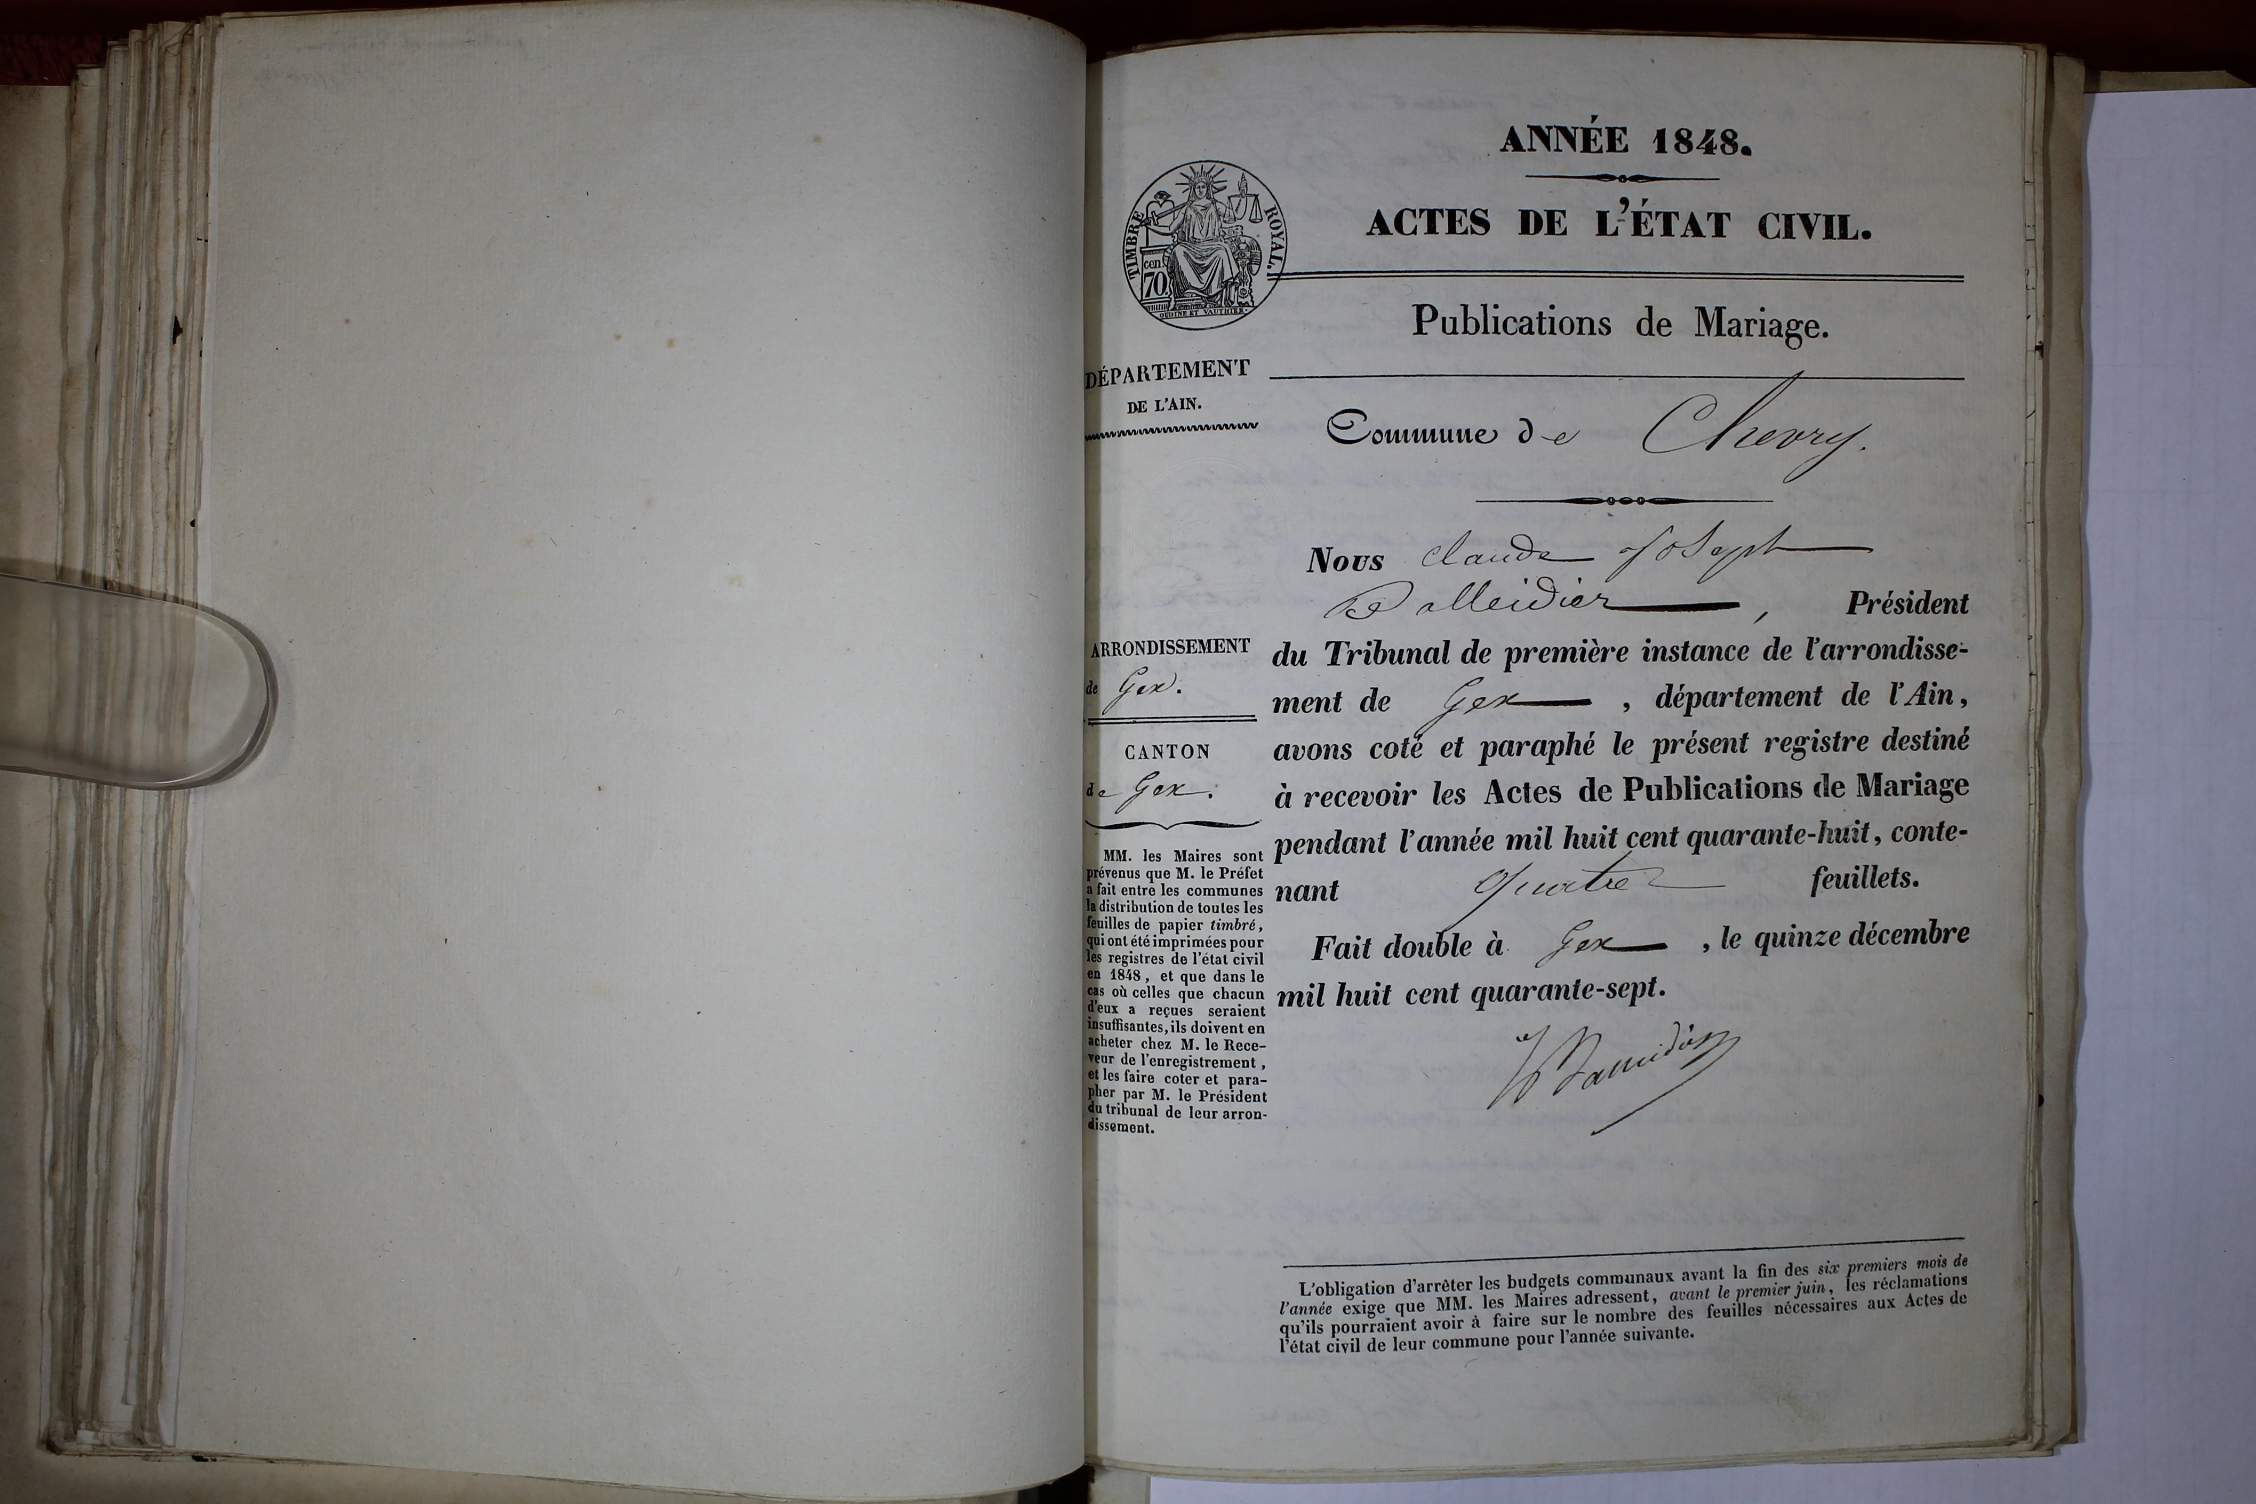 ANNÉE 1848.
ACTES DE L'ÉTAT CIVIL.
TIMBRE ROYAL.
cen.
70.
Publications de Mariage.
DÉPARTEMENT
DE L'AIN.
Commune de Chevry.
ARRONDISSEMENT
de Gex.
CANTON
de Gex.
MM. les Maires sont
prévenus que M. le Préfet
a fait entre les communes
la distribution de toutes les
feuilles de papier timbré,
qui ont été imprimées pour
les registres de l'état civil
en 1848, et que dans le
cas où celles que chacun
d'eux a reçues seraient
insuffisantes, ils doivent en
acheter chez M. le Rece-
veur de l'enregistrement,
et les faire coter et para-
pher par M. le Président
du tribunal de leur arron-
dissement.
Nous Claude Joseph
, Président
du Tribunal de première instance de l'arrondisse-
ment de Gex, département de l'Ain,
avons coté et paraphé le présent registre destiné
à recevoir les Actes de Publications de Mariage
pendant l'année mil huit cent quarante-huit, conte-
nant quatre feuillets.
Fait double à Gex, le quinze décembre
mil huit cent quarante-sept.
L'obligation d'arrêter les budgets communaux avant la fin des six premiers mois de
l'année exige que MM. les Maires adressent, avant le premier juin, les réclamations
qu'ils pourraient avoir à faire sur le nombre des feuilles nécessaires aux Actes de
l'état civil de leur commune pour l'année suivante.